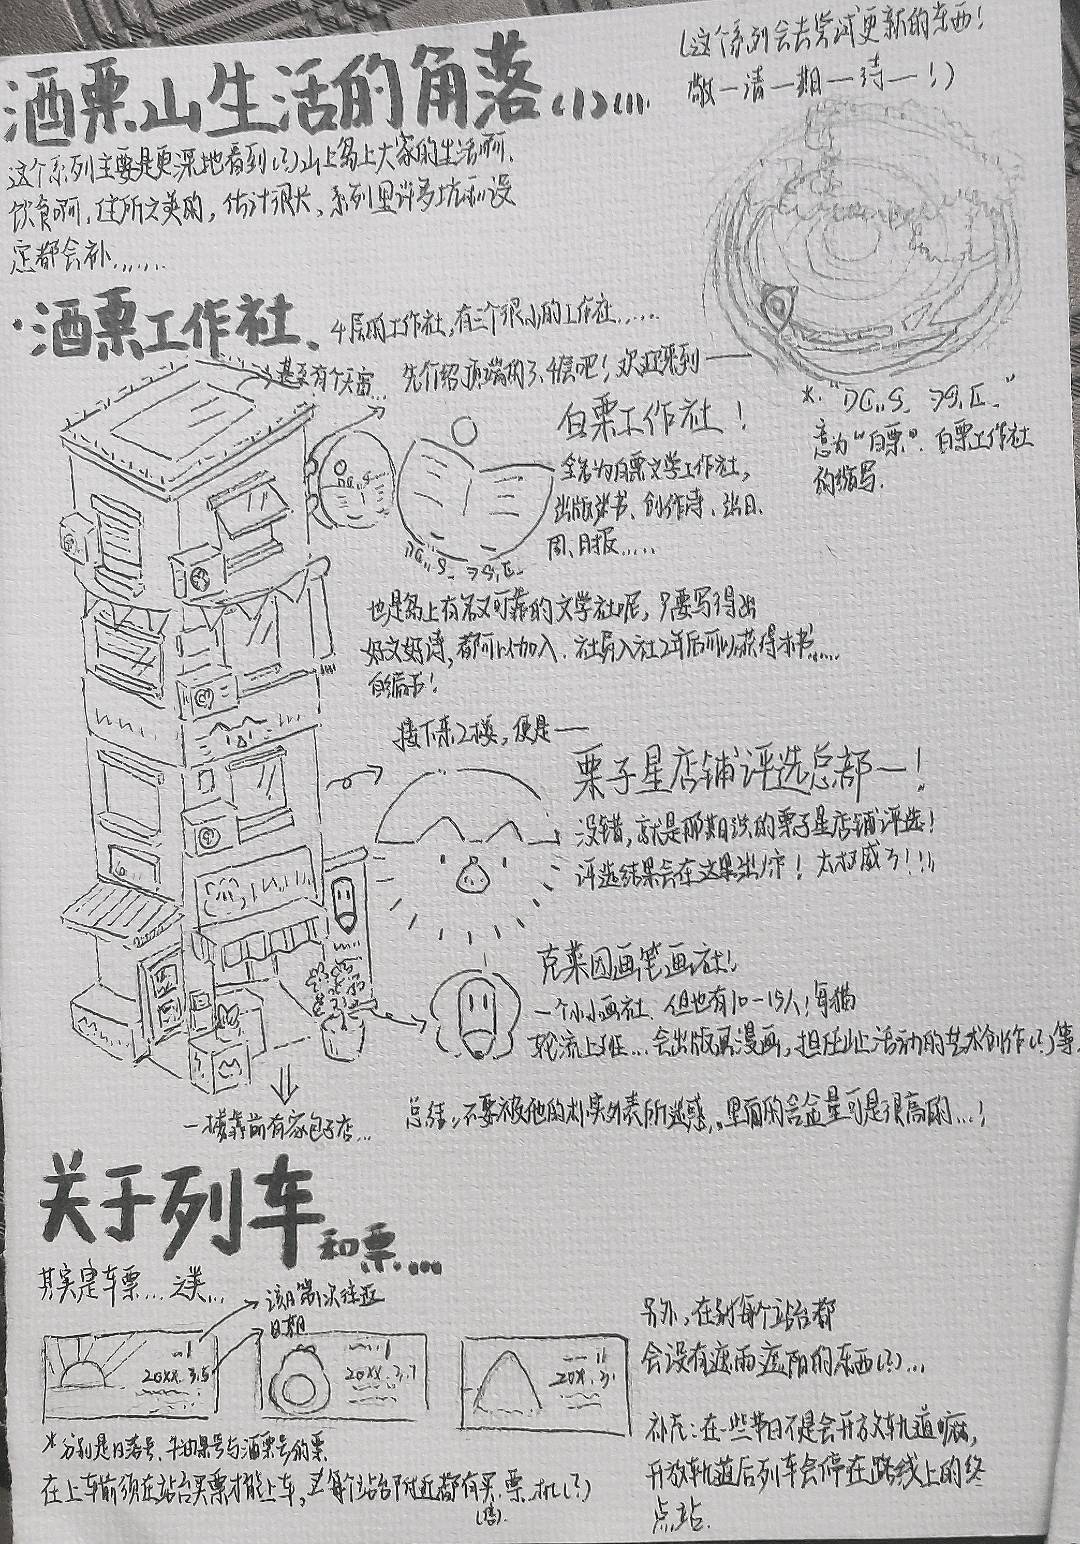 酒栗山生活的角落(1)...
(这个系列会去尝试更新的东西!
敬一请一期一待一!)
这个系列主要是更深地看到(?)山上岛上大家的生活啊、
饮食啊、住所之类的,估计很长、系列里许多坑和设
定都会补......
·酒栗工作社、
4层的工作社,有三个很小的工作社......
甚至有个天窗...
先介绍顶端的3、4层吧!欢迎来到——
白栗工作社!
全名为白栗文学工作社,
出版类书、创作诗、出日、
周、月报.....
意为"白栗",白栗工作社
的缩写.
也是岛上有名又可靠的文学社呢,只要写得出
好文好诗,都可以加入.社员入社2年后可以获得求书.....
自编书!
接下来2楼,便是——
栗子星店铺评选总部—!
没错,就是那期说的栗子星店铺评选!
评选结果会在这里出炉!太权威了!!!
克莱因画笔画社!
一个小小画社.但也有10-15人!每猫
轮流上班...会出版画漫画,担任山上活动的艺术创作(?)等.
一楼靠前有家包子店...
总结:不要被他的朴实外表所迷惑,里面的含金量可是很高的...!
关于列车和票...
其实是车票...之类...
该月第几次往返
日期
20XX.3.5
20XX.3.7
20X.3.
*分别是日落号、牛油果号与酒栗号的票
在上车前须在站台买票才能上车,且每个站台附近都有买票机(?)
(售).
另外,在别每个站台都
会设有遮雨遮阳的东西(?)...
补充:在一些节日不是会开放轨道嘛,
开放轨道后列车会停在路线上的终
点站.